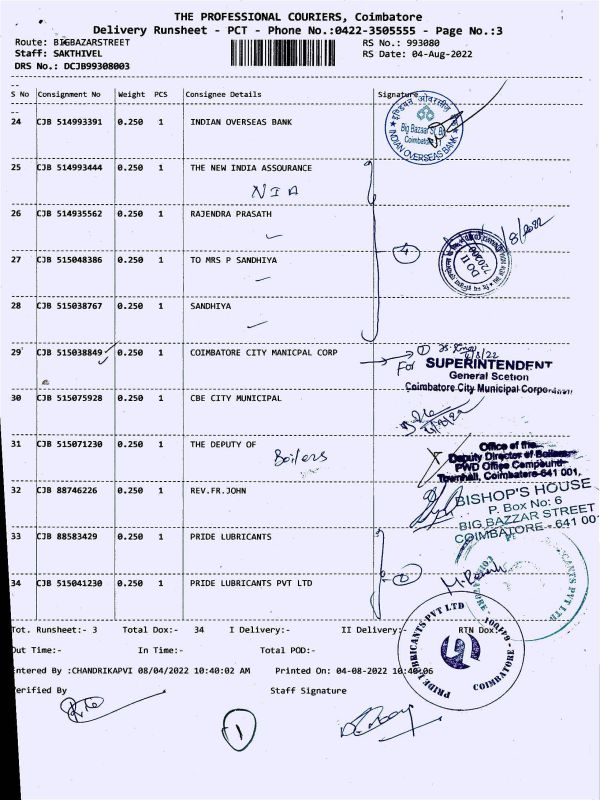 THE PROFESSIONAL COURIERS, Coimbatore
Delivery Runsheet - PCT - Phone No.:0422-3505555 - Page No.:3
Route: BIGBAZARSTREET RS No.: 993080
Staff: SAKTHIVEL RS Date: 04-Aug-2022
DRS No.: DCJB99308003
S No Consignment No Weight PCS Consignee Details Signature
24 CJB 514993391 0.250 1 INDIAN OVERSEAS BANK
इण्डियन ओवरसीज़ बैंक
Big Bazaar St. Br.
Coimbatore
INDIAN OVERSEAS BANK
25 CJB 514993444 0.250 1 THE NEW INDIA ASSOURANCE
NIA
26 CJB 514935562 0.250 1 RAJENDRA PRASATH
4
27 CJB 515048386 0.250 1 TO MRS P SANDHIYA
DO II
720200
28 CJB 515038767 0.250 1 SANDHIYA
29 CJB 515038849 0.250 1 COIMBATORE CITY MANICPAL CORP
For SUPERINTENDENT
General Scetion
Coimbatore City Municipal Corporation
30 CJB 515075928 0.250 1 CBE CITY MUNICIPAL
31 CJB 515071230 0.250 1 THE DEPUTY OF
Boilers
Office of the
Deputy Director of Boilers
PWD Office Campound
Townhall, Coimbatore-641 001.
32 CJB 88746226 0.250 1 REV.FR.JOHN
BISHOP'S HOUSE
P. Box No: 6
BIG BAZZAR STREET
COIMBATORE - 641 001
33 CJB 88583429 0.250 1 PRIDE LUBRICANTS
34 CJB 515041230 0.250 1 PRIDE LUBRICANTS PVT LTD
PRIDE LUBRICANTS PVT LTD
COIMBATORE - 641001
Tot. Runsheet:- 3 Total Dox:- 34 I Delivery:- II Delivery:- RTN Dox:
Out Time:- In Time:- Total POD:-
Entered By :CHANDRIKAPVI 08/04/2022 10:40:02 AM Printed On: 04-08-2022 10:40:06
Verified By Staff Signature
1